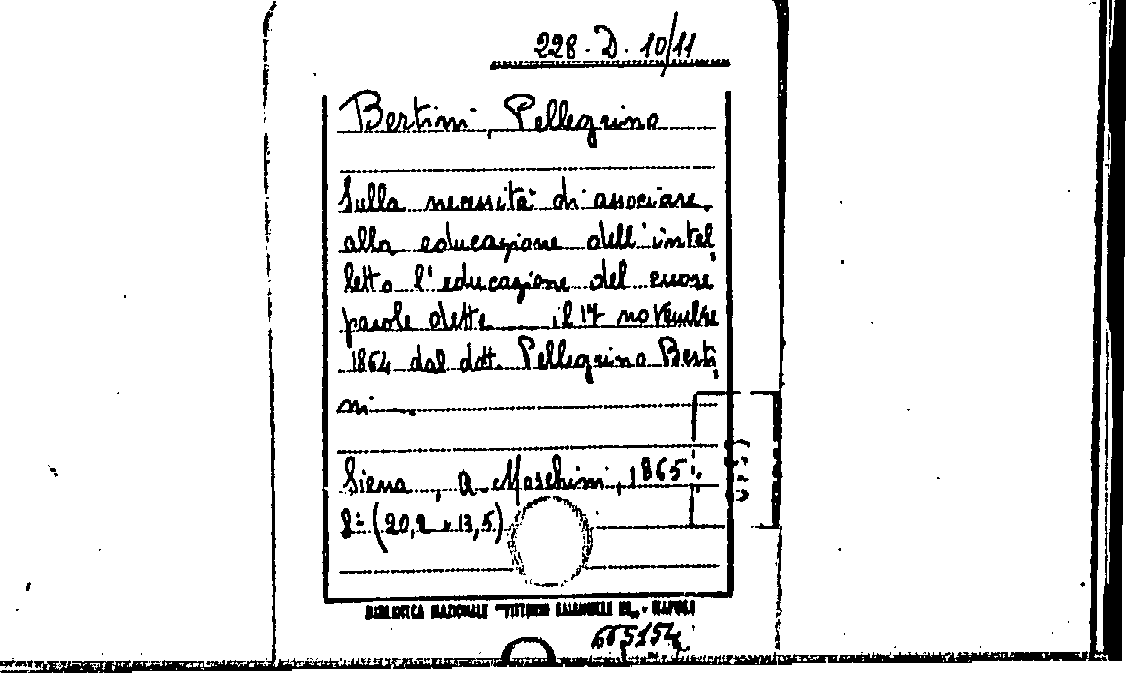 228. D. 10/11
Bertini, Pellegrino
Sulla necessità di associare
alla educazione dell'intel
letto l'educazione del cuore
parole dette il 17 novembre
1864 dal dott. Pellegrino Berti
ni
Siena, A. Moschini, 1865.
8° (20,2 x 13,5)
BIBLIOTECA NAZIONALE "VITTORIO EMANUELE III" - NAPOLI